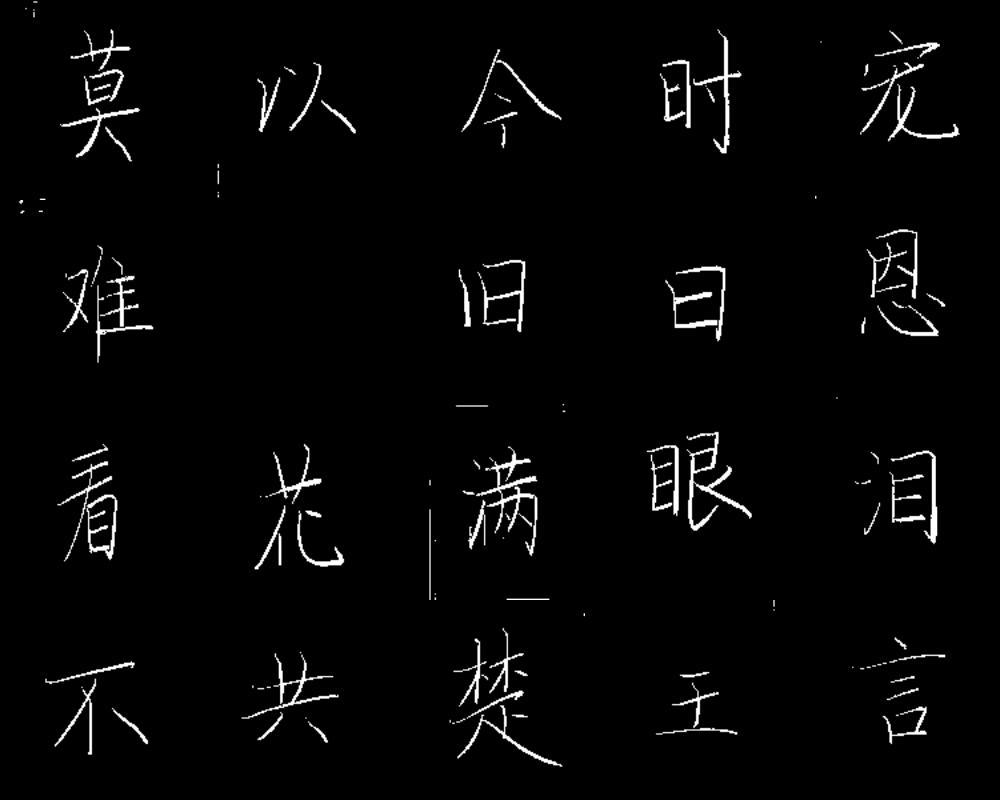 莫以今时宠
难 旧日恩
看花满眼泪
不共楚王言